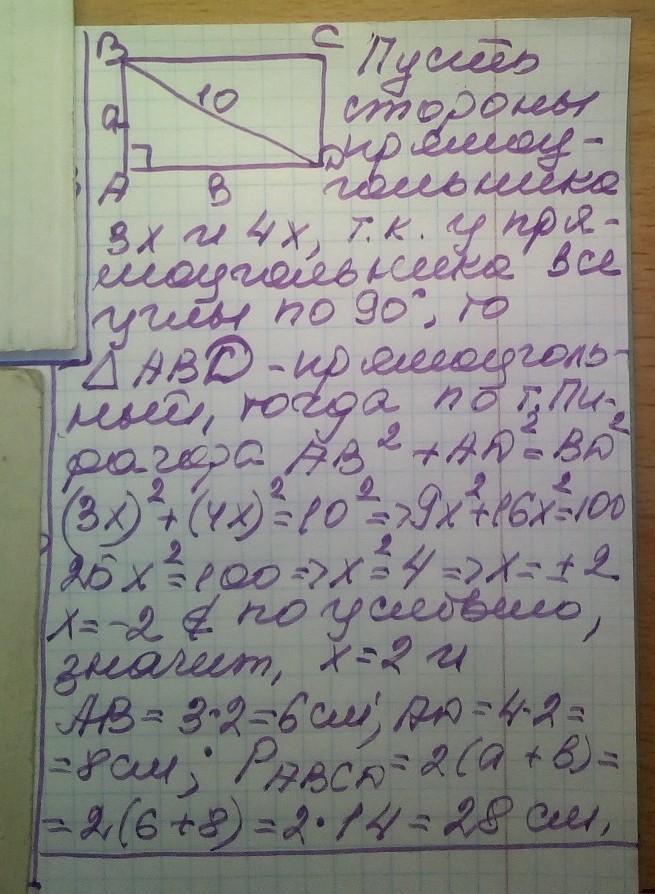 B C Пусть
a 10 стороны
прямоу-
A в D гольника
3x и 4x, т.к. у пря-
моугольника все
углы по 90°, то
△ ABD - прямоуголь-
ный, тогда по т. Пи-
фагора AB² + AD² = BD²
(3x)² + (4x)² = 10² => 9x² + 16x² = 100
25x² = 100 => x² = 4 => x = ±2
x = -2 ∉ по условию,
значит, x = 2 и
AB = 3·2 = 6 см; AD = 4·2 =
= 8 см; P ABCD = 2(a + в) =
= 2(6 + 8) = 2·14 = 28 см.